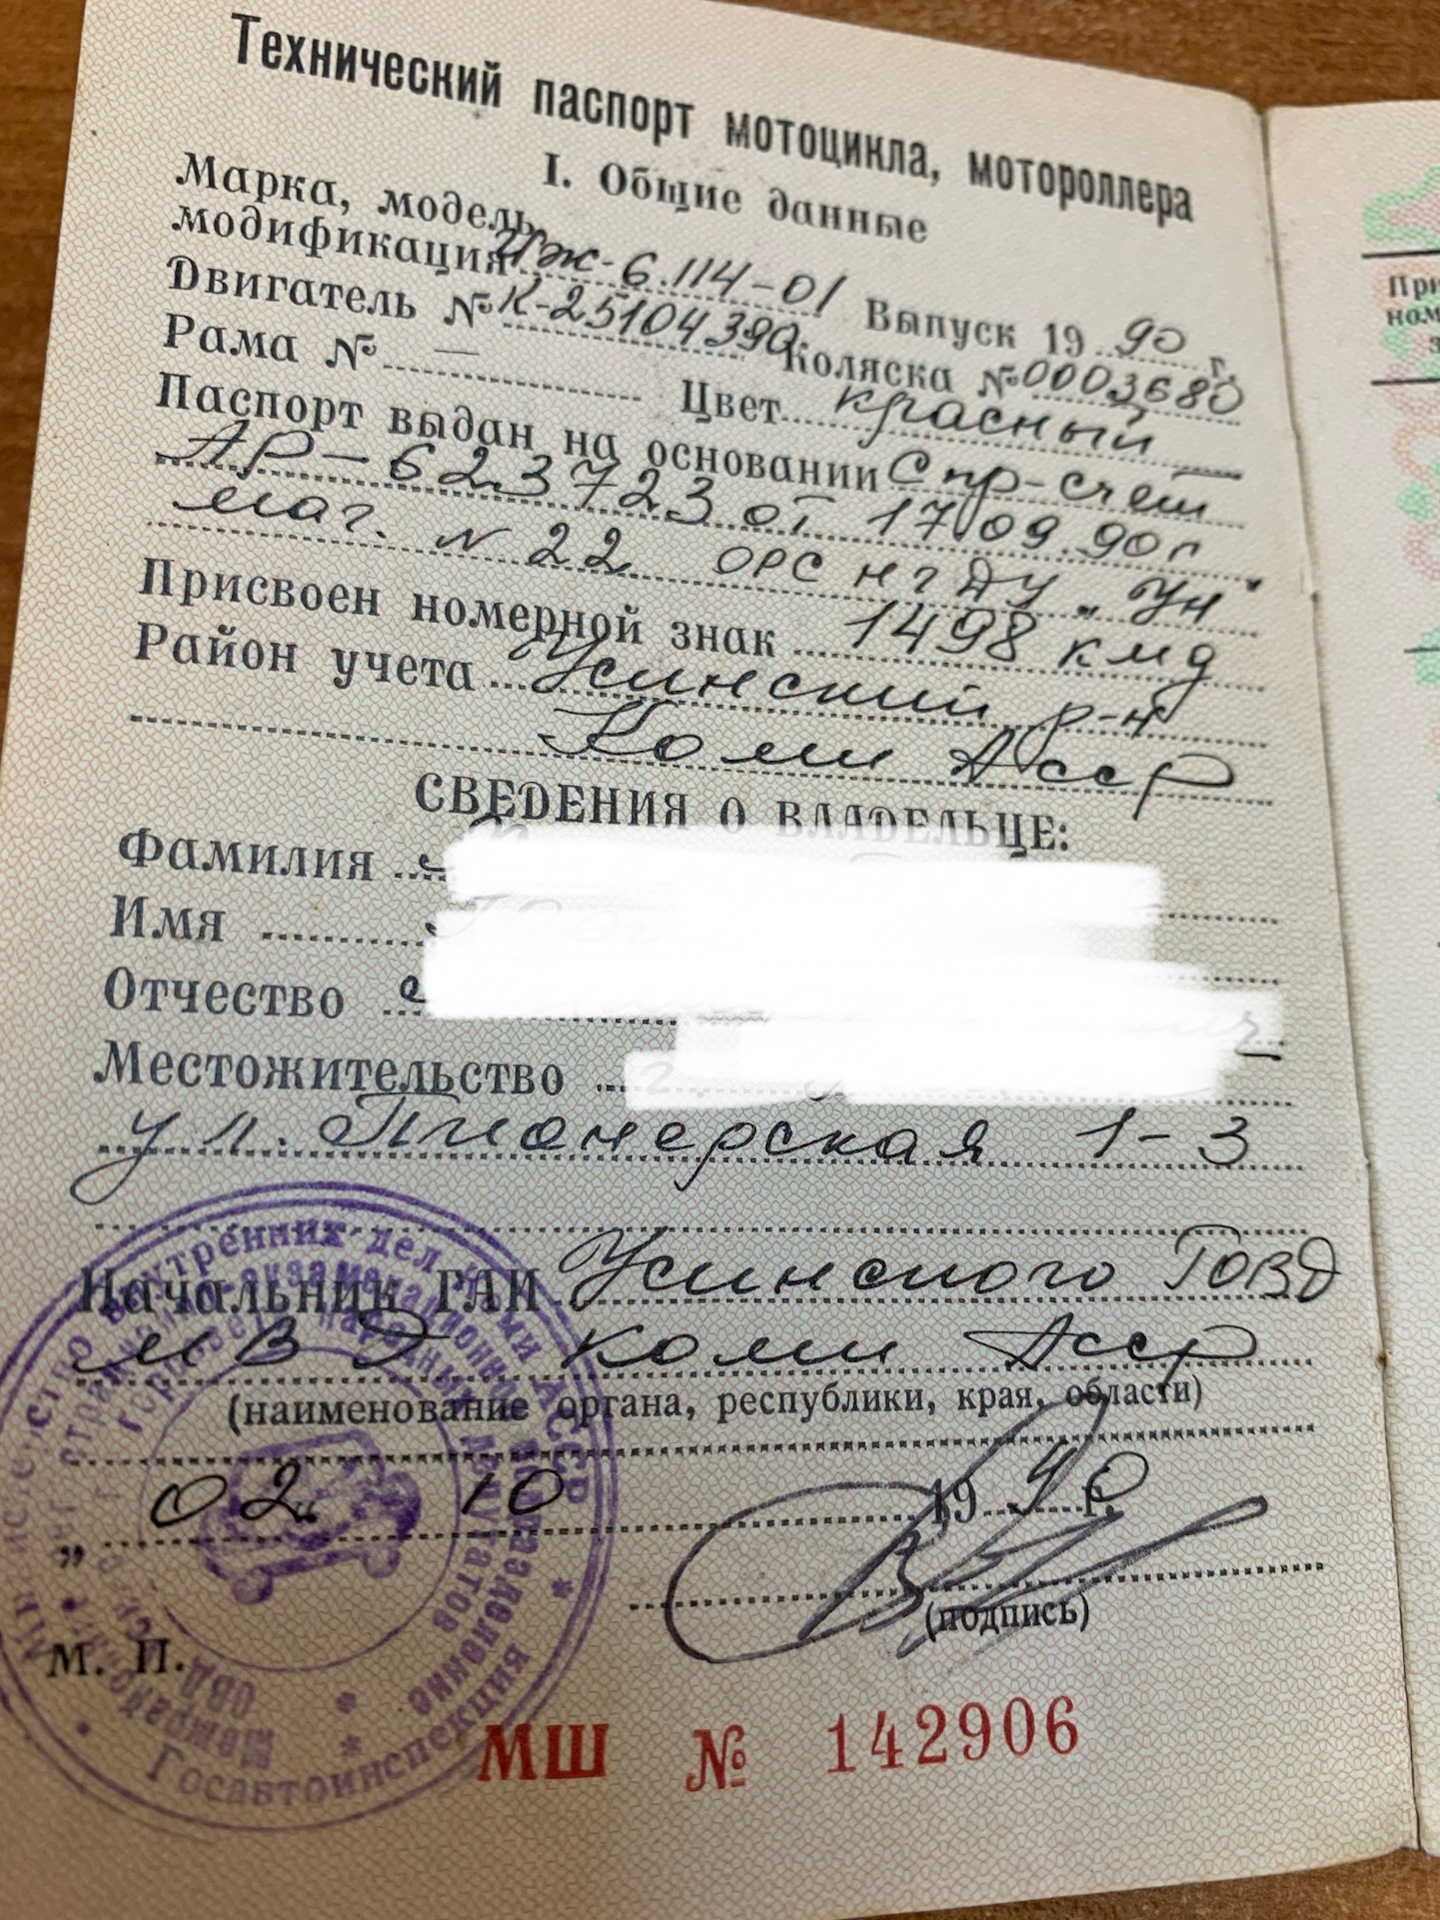 Технический паспорт мотоцикла, мотороллера
I. Общие данные
Марка, модель,
модификация Иж-6.114-01 Выпуск 19 90 г.
Двигатель № К-25104390 Коляска № 0003680
Рама № — Цвет красный
Паспорт выдан на основании Спр-счет
АР-623723 от 17 09.90г
маг. N 22 ОРС НГДУ "Ун"
Присвоен номерной знак 1498 кмд
Район учета Усинский р-н
Коми Асср
СВЕДЕНИЯ О ВЛАДЕЛЬЦЕ:
Фамилия
Имя
Отчество
Местожительство
ул. Пионерская 1-3
Начальник ГАИ Усинского ГОВД
МВД Коми Асср
(наименование органа, республики, края, области)
„ 02 " 10 19 90 г.
(подпись)
М. П.
МШ № 142906
внутренних дел Коми АССР
Госавтоинспекция